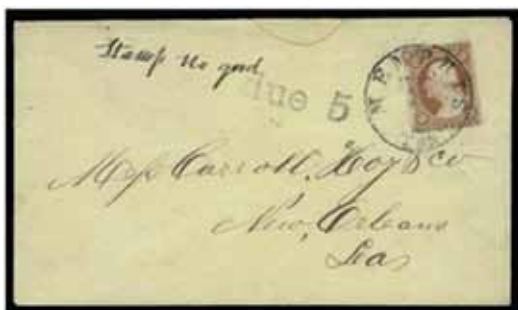 Stamp no good
Due 5
MEMPHIS
Messrs Carroll, Hoy & co
New, Orleans
Lea